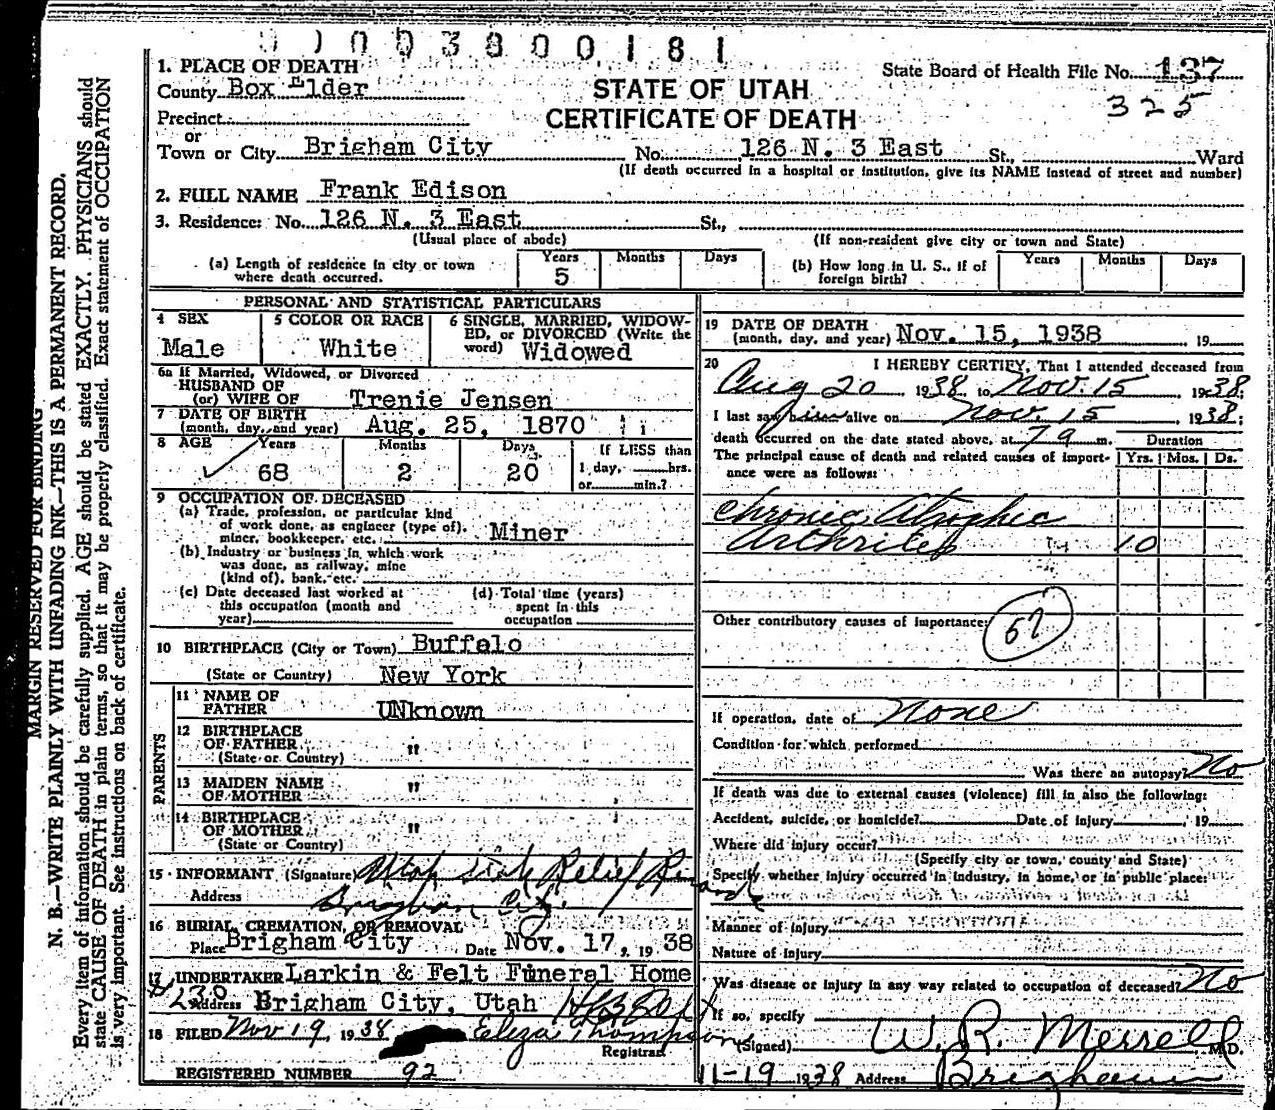 003800181
1. PLACE OF DEATH
State Board of Health File No. 137
County Box Elder
STATE OF UTAH
325
Precinct
CERTIFICATE OF DEATH
or
Town or City Brigham City No. 126 N. 3 East St., Ward
(If death occurred in a hospital or institution, give its NAME instead of street and number)
2. FULL NAME Frank Edison
3. Residence: No. 126 N. 3 East St.,
(Usual place of abode) (If non-resident give city or town and State)
(a) Length of residence in city or town where death occurred. Years 5 Months Days
(b) How long in U. S., if of foreign birth? Years Months Days
PERSONAL AND STATISTICAL PARTICULARS
4 SEX Male
5 COLOR OR RACE White
6 SINGLE, MARRIED, WIDOWED, or DIVORCED (Write the word) Widowed
6a If Married, Widowed, or Divorced
HUSBAND OF
(or) WIFE OF Trenie Jensen
7 DATE OF BIRTH
(month, day, and year) Aug. 25, 1870
8 AGE Years 68 Months 2 Days 20 If LESS than
1 day, hrs.
or min.?
9 OCCUPATION OF DECEASED
(a) Trade, profession, or particular kind
of work done, as engineer (type of),
miner, bookkeeper, etc. Miner
(b) Industry or business in which work
was done, as railway, mine
(kind of), bank, etc.
(c) Date deceased last worked at
this occupation (month and
year)
(d) Total time (years)
spent in this
occupation
10 BIRTHPLACE (City or Town) Buffalo
(State or Country) New York
PARENTS
11 NAME OF
FATHER UNknown
12 BIRTHPLACE
OF FATHER "
(State or Country)
13 MAIDEN NAME
OF MOTHER "
14 BIRTHPLACE
OF MOTHER "
(State or Country)
15 INFORMANT (Signature) Utah State Relief
Address Brigham City.
16 BURIAL, CREMATION, OR REMOVAL
Place Brigham City Date Nov. 17, 1938
17 UNDERTAKER Larkin & Felt Funeral Home
# 230 Address Brigham City, Utah
18 FILED Nov 19, 1938 Eliza Thompson
Registrar
REGISTERED NUMBER 92
19 DATE OF DEATH
(month, day, and year) Nov. 15, 1938, 19
20 I HEREBY CERTIFY, That I attended deceased from
Aug 20 1938 to Nov. 15, 1938;
I last saw him alive on Nov. 15, 1938;
death occurred on the date stated above, at 7 a m. Duration
The principal cause of death and related causes of importance were as follows: Yrs. Mos. Ds.
Chronic Atrophic
Arthritis 10
Other contributory causes of importance:
If operation, date of None
Condition for which performed
Was there an autopsy? No
If death was due to external causes (violence) fill in also the following:
Accident, suicide, or homicide? Date of injury , 19
Where did injury occur?
(Specify city or town, county and State)
Specify whether injury occurred in industry, in home, or in public place:
Manner of injury
Nature of injury
Was disease or injury in any way related to occupation of deceased? No
If so, specify
(Signed) W. R. Merrell M.D.
11-19 1938 Address Brigham
MARGIN RESERVED FOR BINDING
N. B.—WRITE PLAINLY WITH UNFADING INK—THIS IS A PERMANENT RECORD.
Every item of information should be carefully supplied. AGE should be stated EXACTLY. PHYSICIANS should
state CAUSE OF DEATH in plain terms, so that it may be properly classified. Exact statement of OCCUPATION
is very important. See instructions on back of certificate.